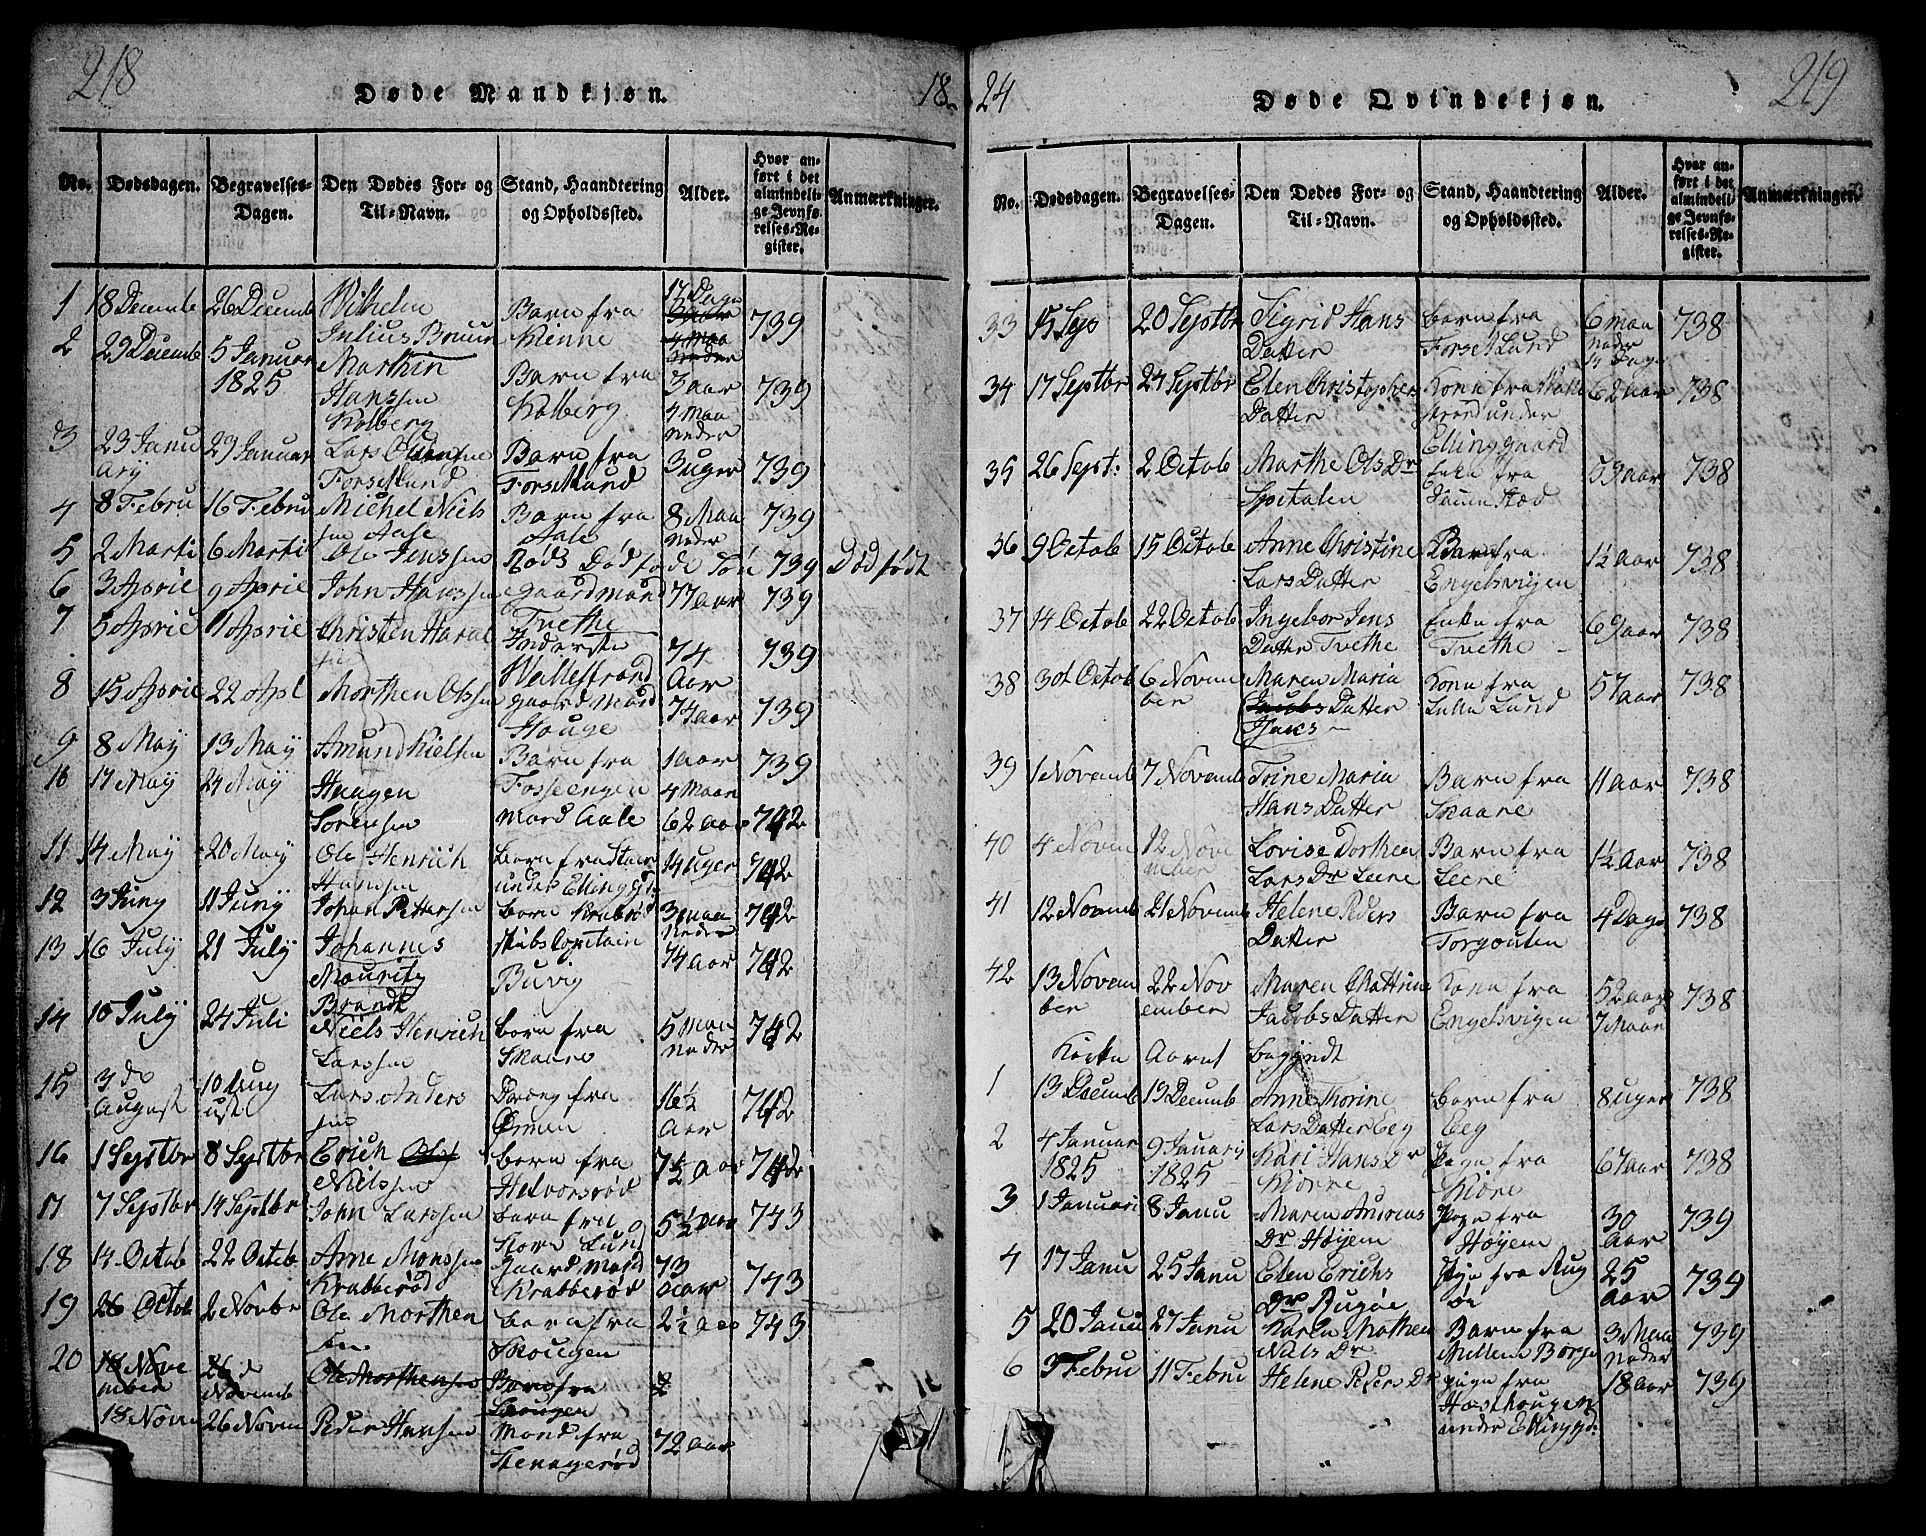 218
Døde Mandkjøn.
18
No. Dødsdagen. Begravelses-Dagen. Den Dødes For- og Til-Navn. Stand, Haandtering og Opholdssted. Alder. Hvor anført i det almindelige Jevnførelses-Register. Anmærkninger.
1 18 Decemb 26 Decemb Wilhelm Julius Bruun Barn fra Kienne 17 Dage 739
2 29 Decemb 5 Januar 1825 Marthin Hanssen Kolberg Barn fra Kolberg 3 aar 4 Maa neder 739
3 23 Janu ary 29 Januar Lars Olsen Forsetlund Barn fra Forsetlund 3 uger 739
4 8 Febru 16 Febru Michel Niels sen Aale Barn fra Aale 8 Maa neder 739
5 2 Marti 6 Marti Ole Jenssen Røds Dødfø de Søn 739 Død født
6 3 April 9 April John Hanssen gaardmand Tvethe 77 aar 739
7 5 April 11 April Christen Haral sen Inderste Wallestrand 74 Aar 739
8 15 April 22 Apl Morthen Olssen gaard Mand Houge 74 aar 739
9 8 May 13 May Amund Nielsen Barn fra Fosseengen 1 aar 4 Maan 739
10 17 May 24 May Haagen Sørensen Mand Aale 62 aar 742
11 14 May 20 May Ole Henrich Hansen barn fra under Ellinggd 14 uger 742
12 3 Juny 11 Juny Johan Pettersen barn Krabrød 3 maa neder 742
13 16 July 21 July Johannes Mouritz Brandt skibs Capitain Buvig 74 aar 742
14 10 July 24 Juli Niels Henrich Larssen barn fra Skaare 5 Maa neder 742
15 3 de August 10 Aug ust Lars Anders sen Dreng fra Ørmen 16½ Aar 742
16 1 Septbr 8 Septbr Erich Nielssen barn fra Helvorsrød 7½ Aar 742
17 7 Septbr 14 Septbr John Larssen barn fra Store Lund 5½ aar 743
18 14 Octob 22 Octob Arne Monssen Krabberød Gaard Mand Krabberød 73 aar 743
19 26 Octob 2 Novbr Ole Morthen sen barn fra Skougen 2½ aar 743
20 18 Nove mber 26 d Novemb Ole Morthensen Barn fra Skougen
18 Novem 26 Novem Peder Hansen Mand fra Stenagerød 72 aar

24
Døde Qvindekjøn.
219
No. Dødsdagen. Begravelses-Dagen. Den Dødes For- og Til-Navn. Stand, Haandtering og Opholdssted. Alder. Hvor anført i det almindelige Jevnførelses-Register. Anmærkninger.
33 15 Sep 20 Septbr Sigrid Hans Datter barn fra Forset Lund 6 maa neder 14 Dage 738
34 17 Septbr 24 Septbr Elen Christophers Datter Kone fra under Ellinggaard 62 aar 738
35 26 Sept: 2 Octob Marthe Ols Dr Spetalen Enke fra 53 aar 738
36 9 Octob 15 Octob Anne Christine Lars Datter Barn fra Engelsvigen 1½ aar 738
37 14 Octob 22 Octob Ingebor Jens Datter Tvethe Enke fra Tvethe 69 aar 738
38 30t Octob 6 Novem ber Maren Maria Jacobs Datter Hans Kone fra Lille Lund 57 aar 738
39 1 Novemb 7 Novemb Trine Maria Hans Datter Barn fra Skaare 11 aar 738
40 4 Novem 12 Nove mber Lovise Dorthea Lars Dr Leere Barn fra Leere 1½ Aar 738
41 12 Novemb 21 Novemb Helene Peders Datter Barn fra Torgouten 4 Dage 738
42 13 Novem ber 22 Nov ember Maren Cathrine Jacobs Datter Kone fra Engelsvigen 52 aar 7 Maan 738
Kirke Aaret begyndt
1 13 Decemb 19 Decemb Anne Thorine Lars Datter Eeg barn fra Eeg 8 uger 738
2 4 Januar 1825 9 January 1825 Kari Hans Dr Kiorre Pige fra Kiore 67 aar 738
3 1 Januari 8 Janu Maren Andreas Dr Høyem Pige fra Høyem 30 Aar 739
4 17 Janu 25 Janu Elen Erichs Dr Rugøe Pige fra Rug øe 25 Aar 739
5 20 Janu 27 Janu Karen Mathea Niels Dr Barn fra Mellem Borge 3 Maa neder 739
6 3 Febru 11 Febru Helene Peders Dr pige fra Hosshougen under Ellinggd: 18 aar 739